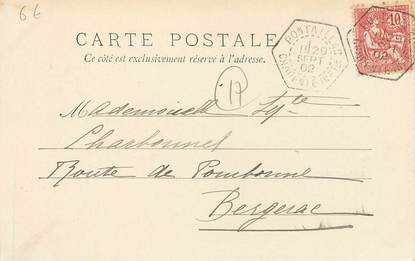 6€
CARTE POSTALE
Ce côté est exclusivement réservé à l'adresse.
PONTAILLAC
1E 29
SEPT
02
10
Mademoiselle
Charbonnel
Route de Pombonne
Bergerac